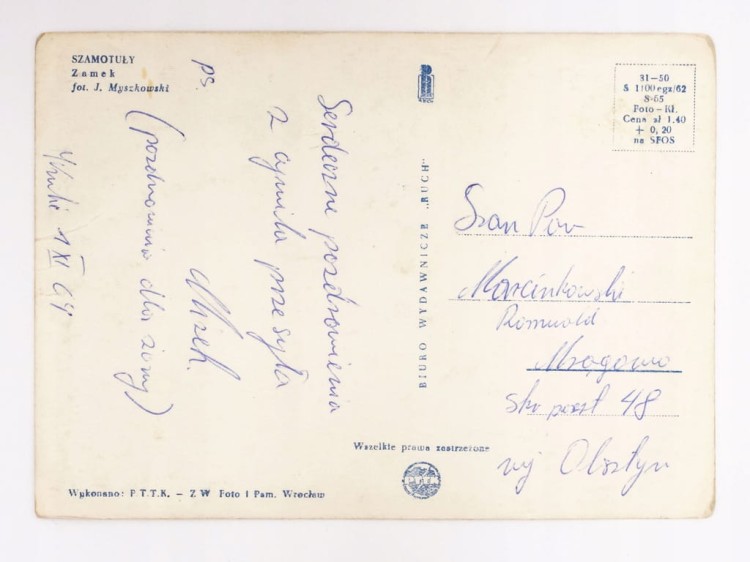 SZAMOTUŁY
Zamek
fot. J. Myszkowski
Serdeczne pozdrowienia
z cywila przesyła
Mirek.
ps.
(pozdrowienia dla żony)
1 XI 64
BIURO WYDAWNICZE „RUCH"
31-50
S 1100 egz/62
S-65
Foto - RŁ
Cena zł 1.40
+ 0,20
na SFOS
Szan Pan
Marcinkowski
Romuald
Mrągowo
skr poczt 48
woj Olsztyn
Wszelkie prawa zastrzeżone
Wykonano: P.T.T.K. - ZW Foto i Pam. Wrocław